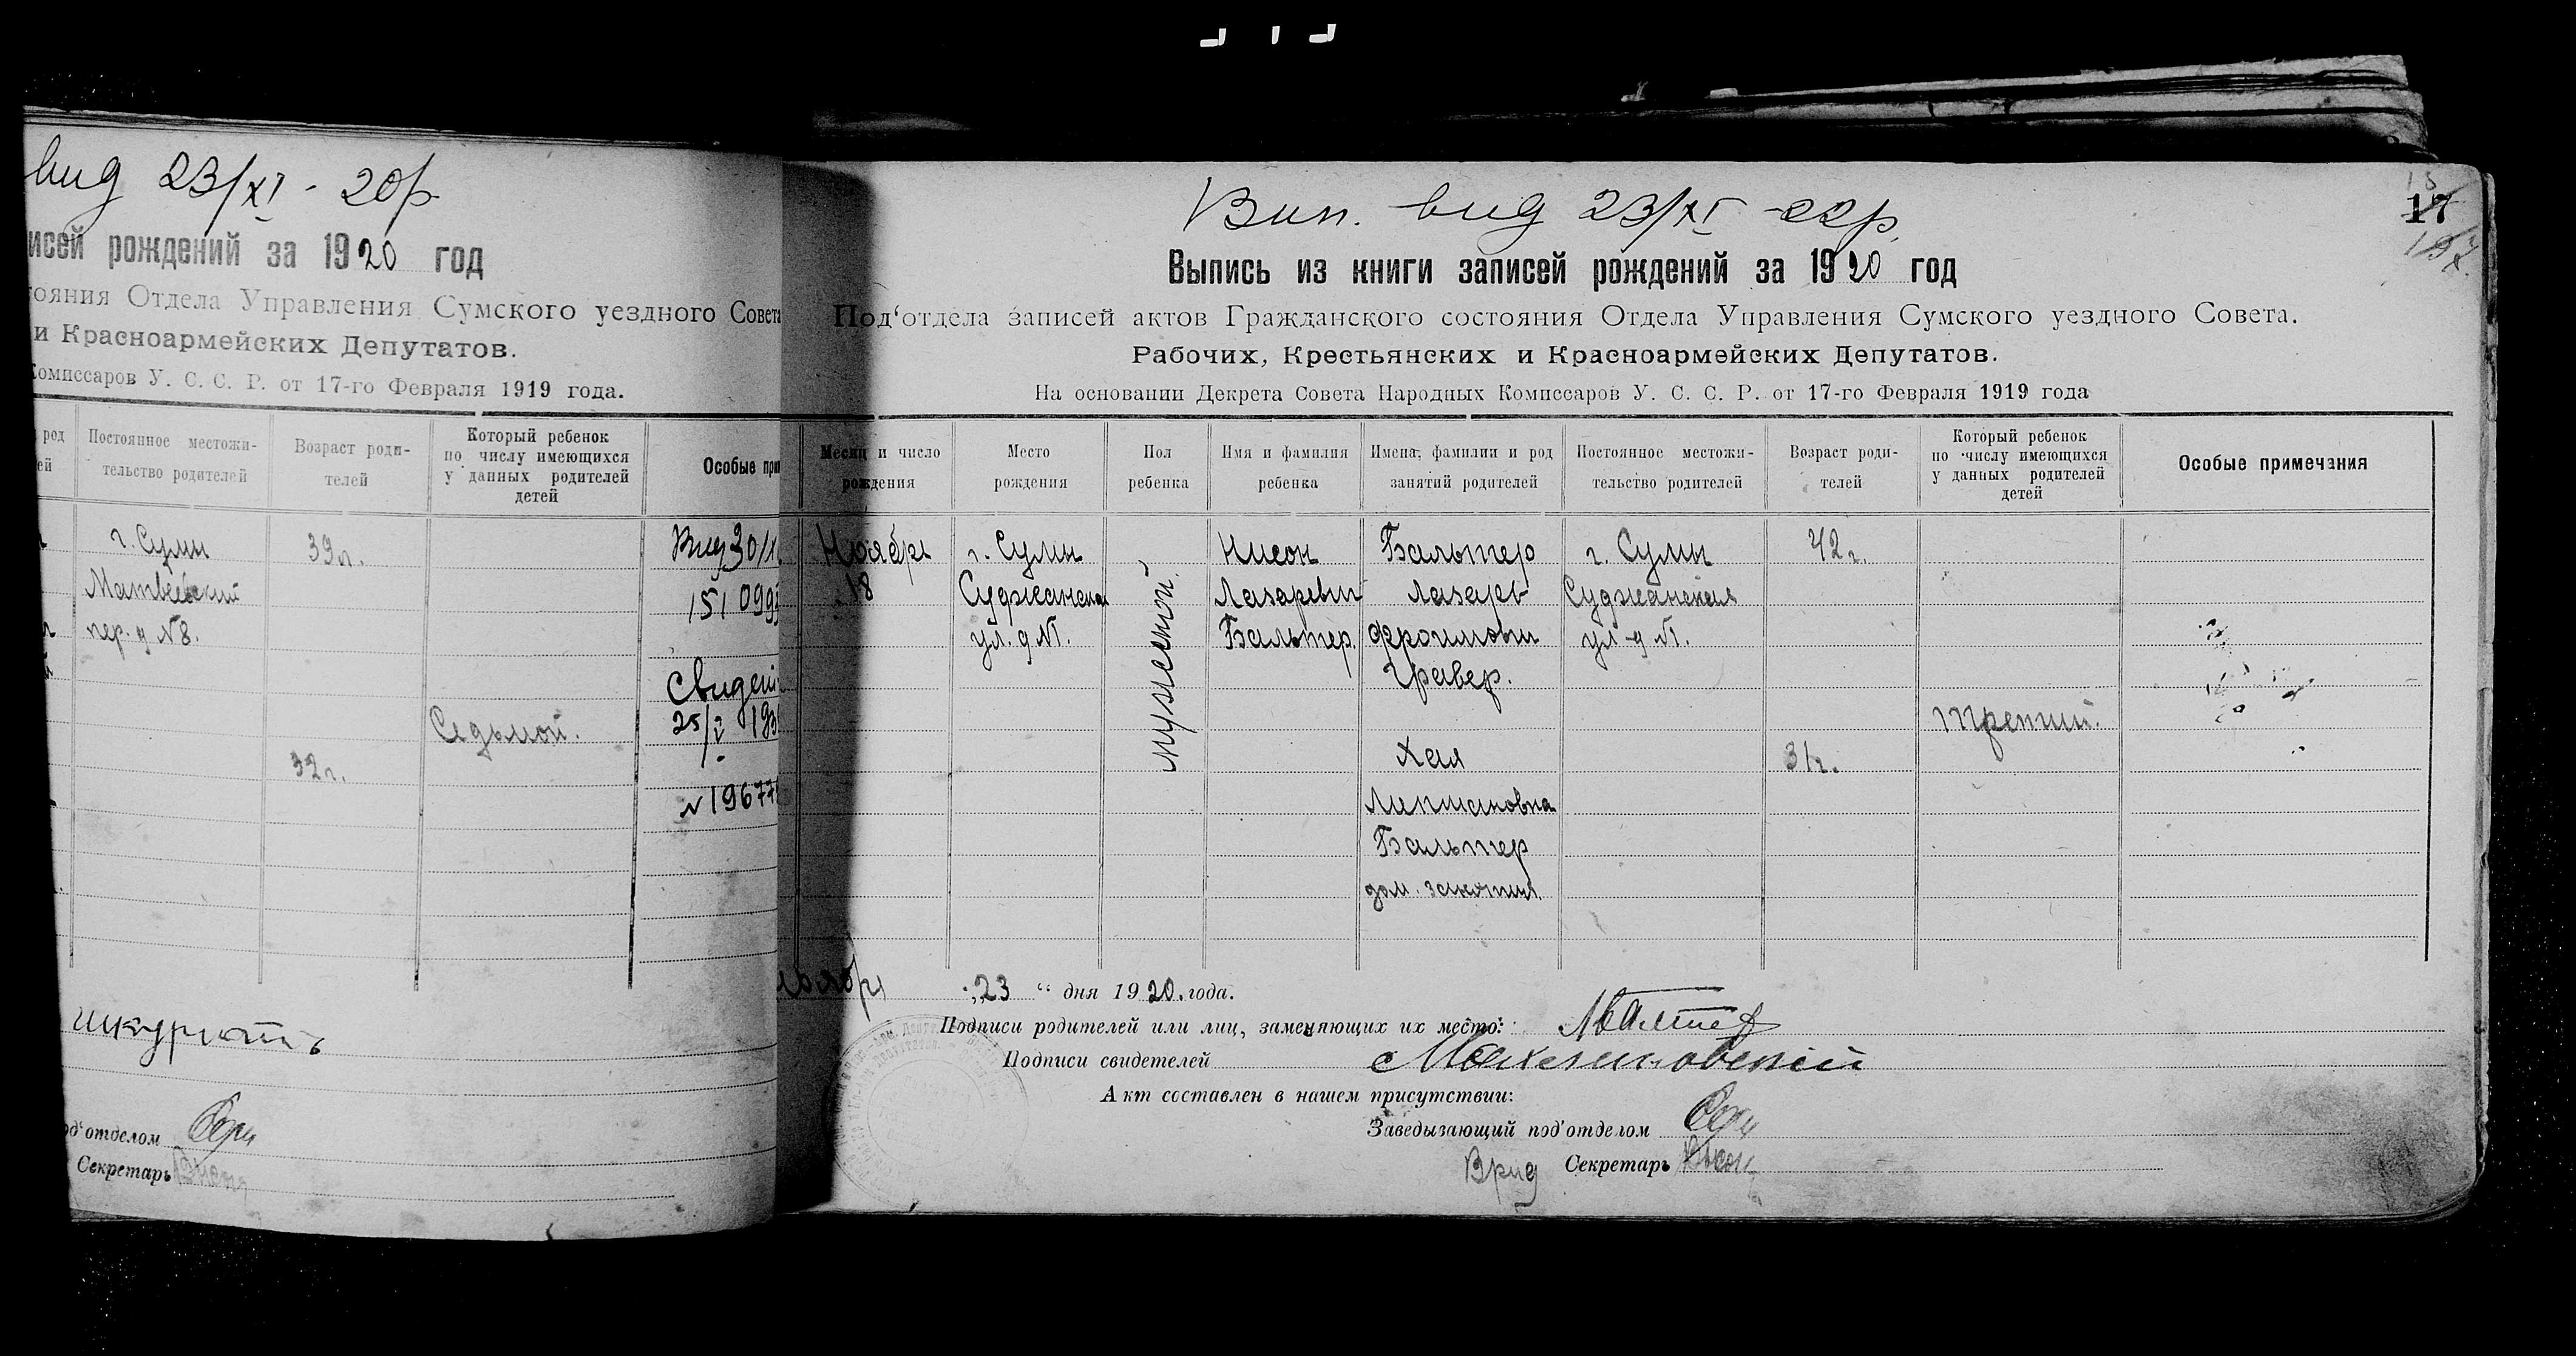 вид 23/XI - 20р
исей рождений за 1920 год
тояния Отдела Управления Сумского уездного Совета
и Красноармейских Депутатов.
Комиссаров У. С. С. Р. от 17-го Февраля 1919 года.
род
ей
Постоянное местожи-
тельство родителей
Возраст роди-
телей
Который ребенок
по числу имеющихся
у данных родителей
детей
Особые при
г. Сумы
Матвеевский
пер. д №8.
39 г.
32 г.
Седьмой.
Вид 30/X
151099
Свидет
25/V 193
№ 19677
шкурать
од'отделом
Секретарь
Вип. вид 23/XI - 20р.
17
Выпись из книги записей рождений за 1920 год
Под'отдела записей актов Гражданского состояния Отдела Управления Сумского уездного Совета.
Рабочих, Крестьянских и Красноармейских Депутатов.
На основании Декрета Совета Народных Комиссаров У. С. С. Р. от 17-го Февраля 1919 года
Месяц и число
рождения
Место
рождения
Пол
ребенка
Имя и фамилия
ребенка
Имена, фамилии и род
занятий родителей
Постоянное местожи-
тельство родителей
Возраст роди-
телей
Который ребенок
по числу имеющихся
у данных родителей
детей
Особые примечания
Ноябрь
18
г. Сумы
Суджанская
ул. д №1.
мужеской.
Нисон
Лазаревич
Бальтер.
Бальтер
Лазарь
Фроимович
Гравер.
Хая
Липмановна
Бальтер
дом. занятия.
г. Сумы
Суджанская
ул. д №1.
42 г.
31 г.
Третий.
ноября „23“ дня 1920. года.
Подписи родителей или лиц, заменяющих их место: Лбалтер
Подписи свидетелей
Акт составлен в нашем присутствии:
Заведызающий под'отделом
Врид Секретарь